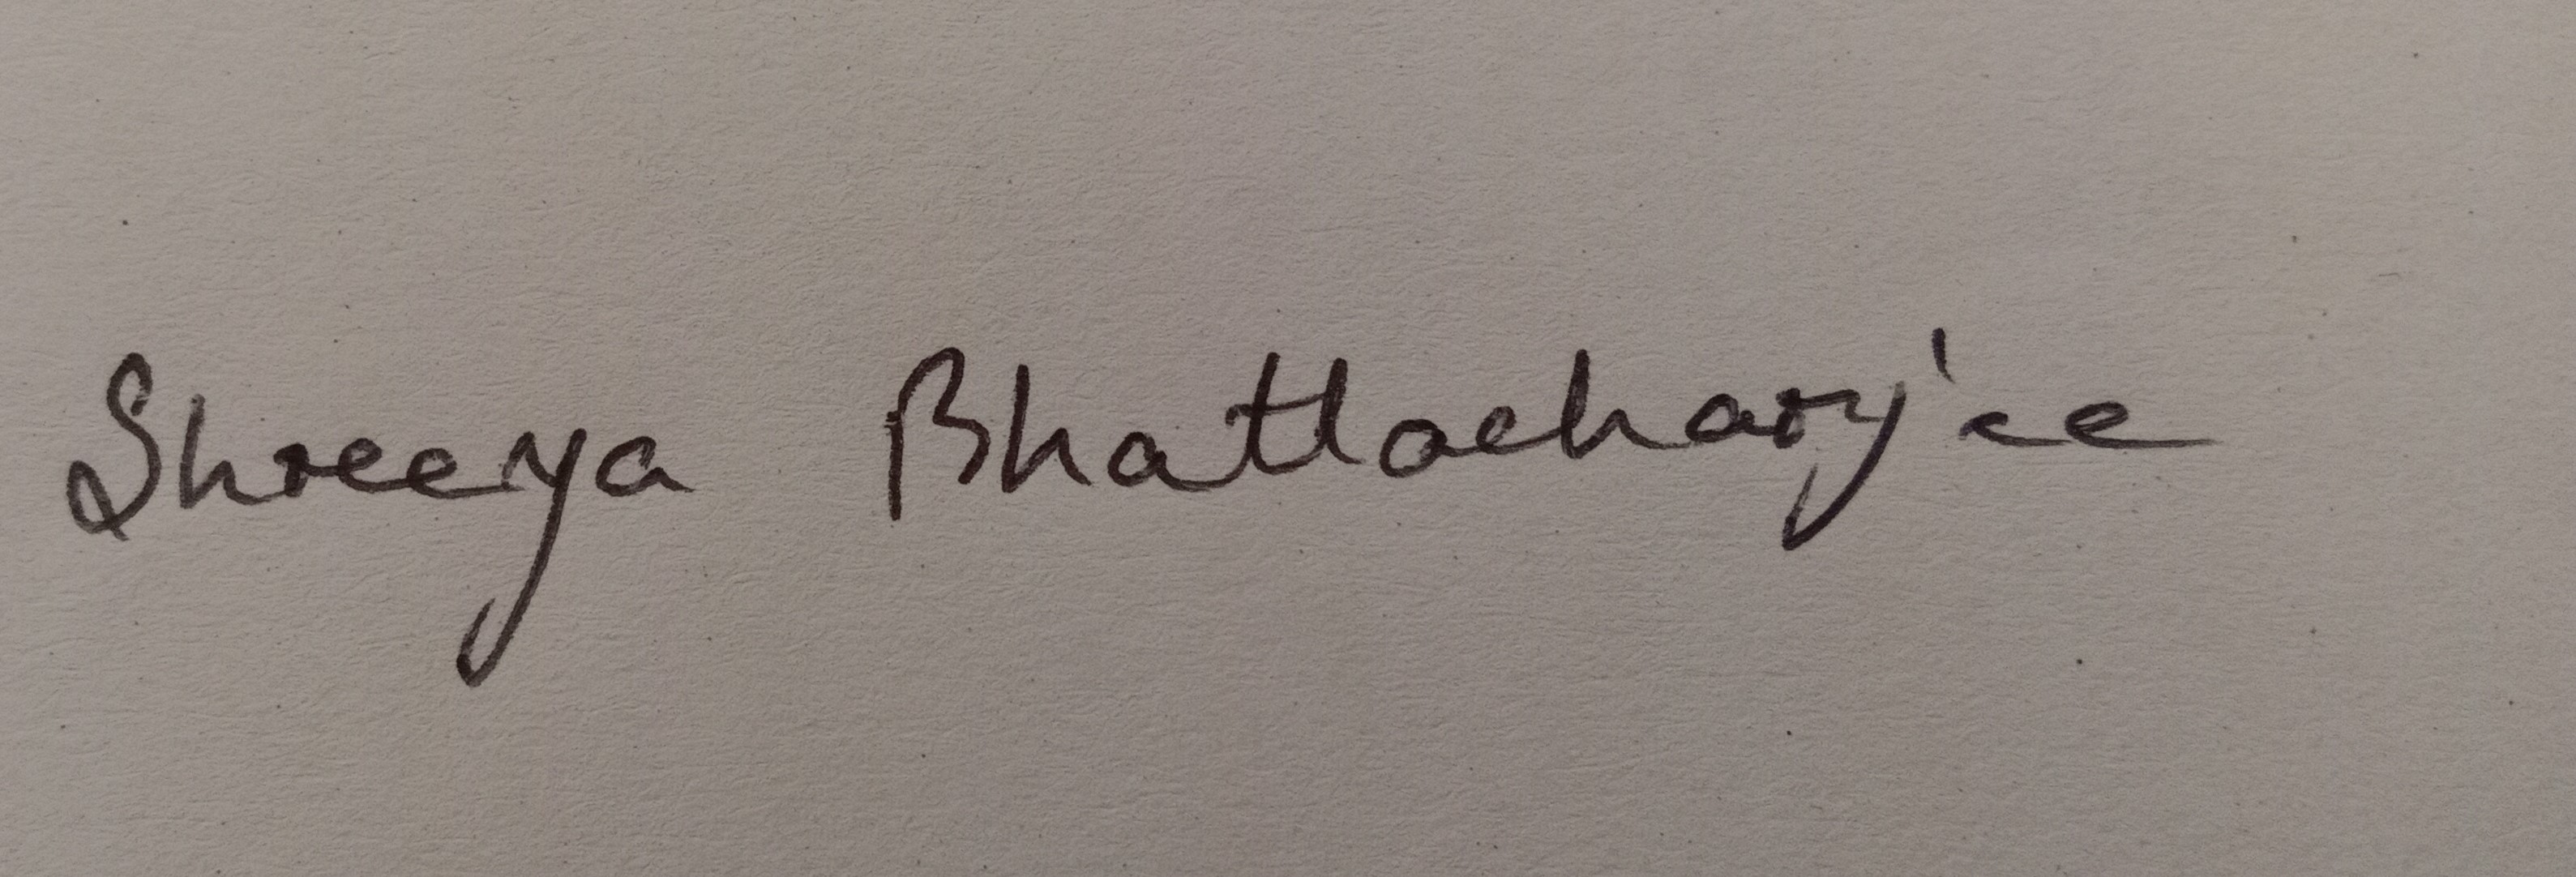 Shreeya Bhattacharjee